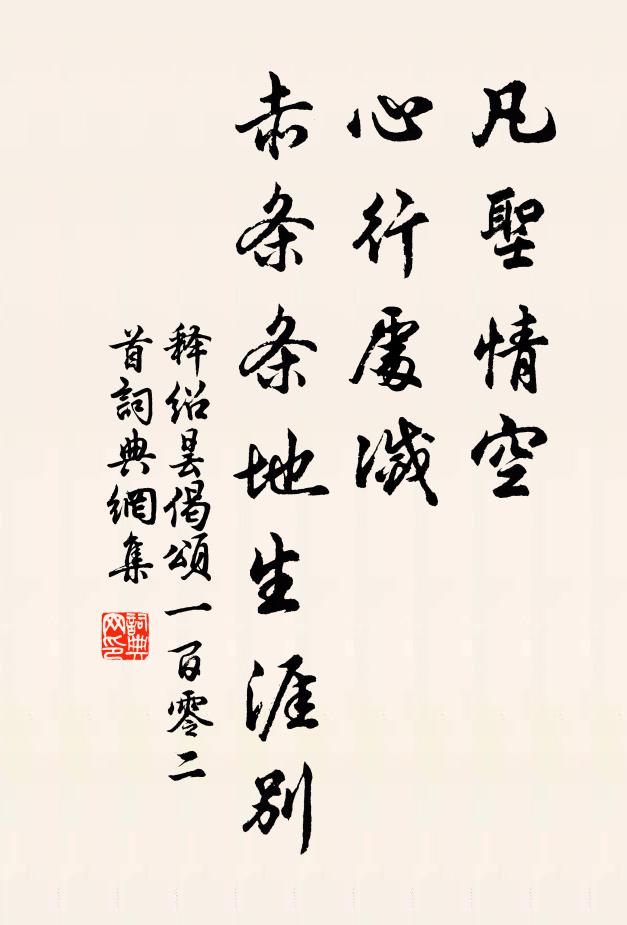 凡聖情空
心行處滅
赤条条地生涯别
释绍昙偈頌一百零二
首詞典網集
詞典网印